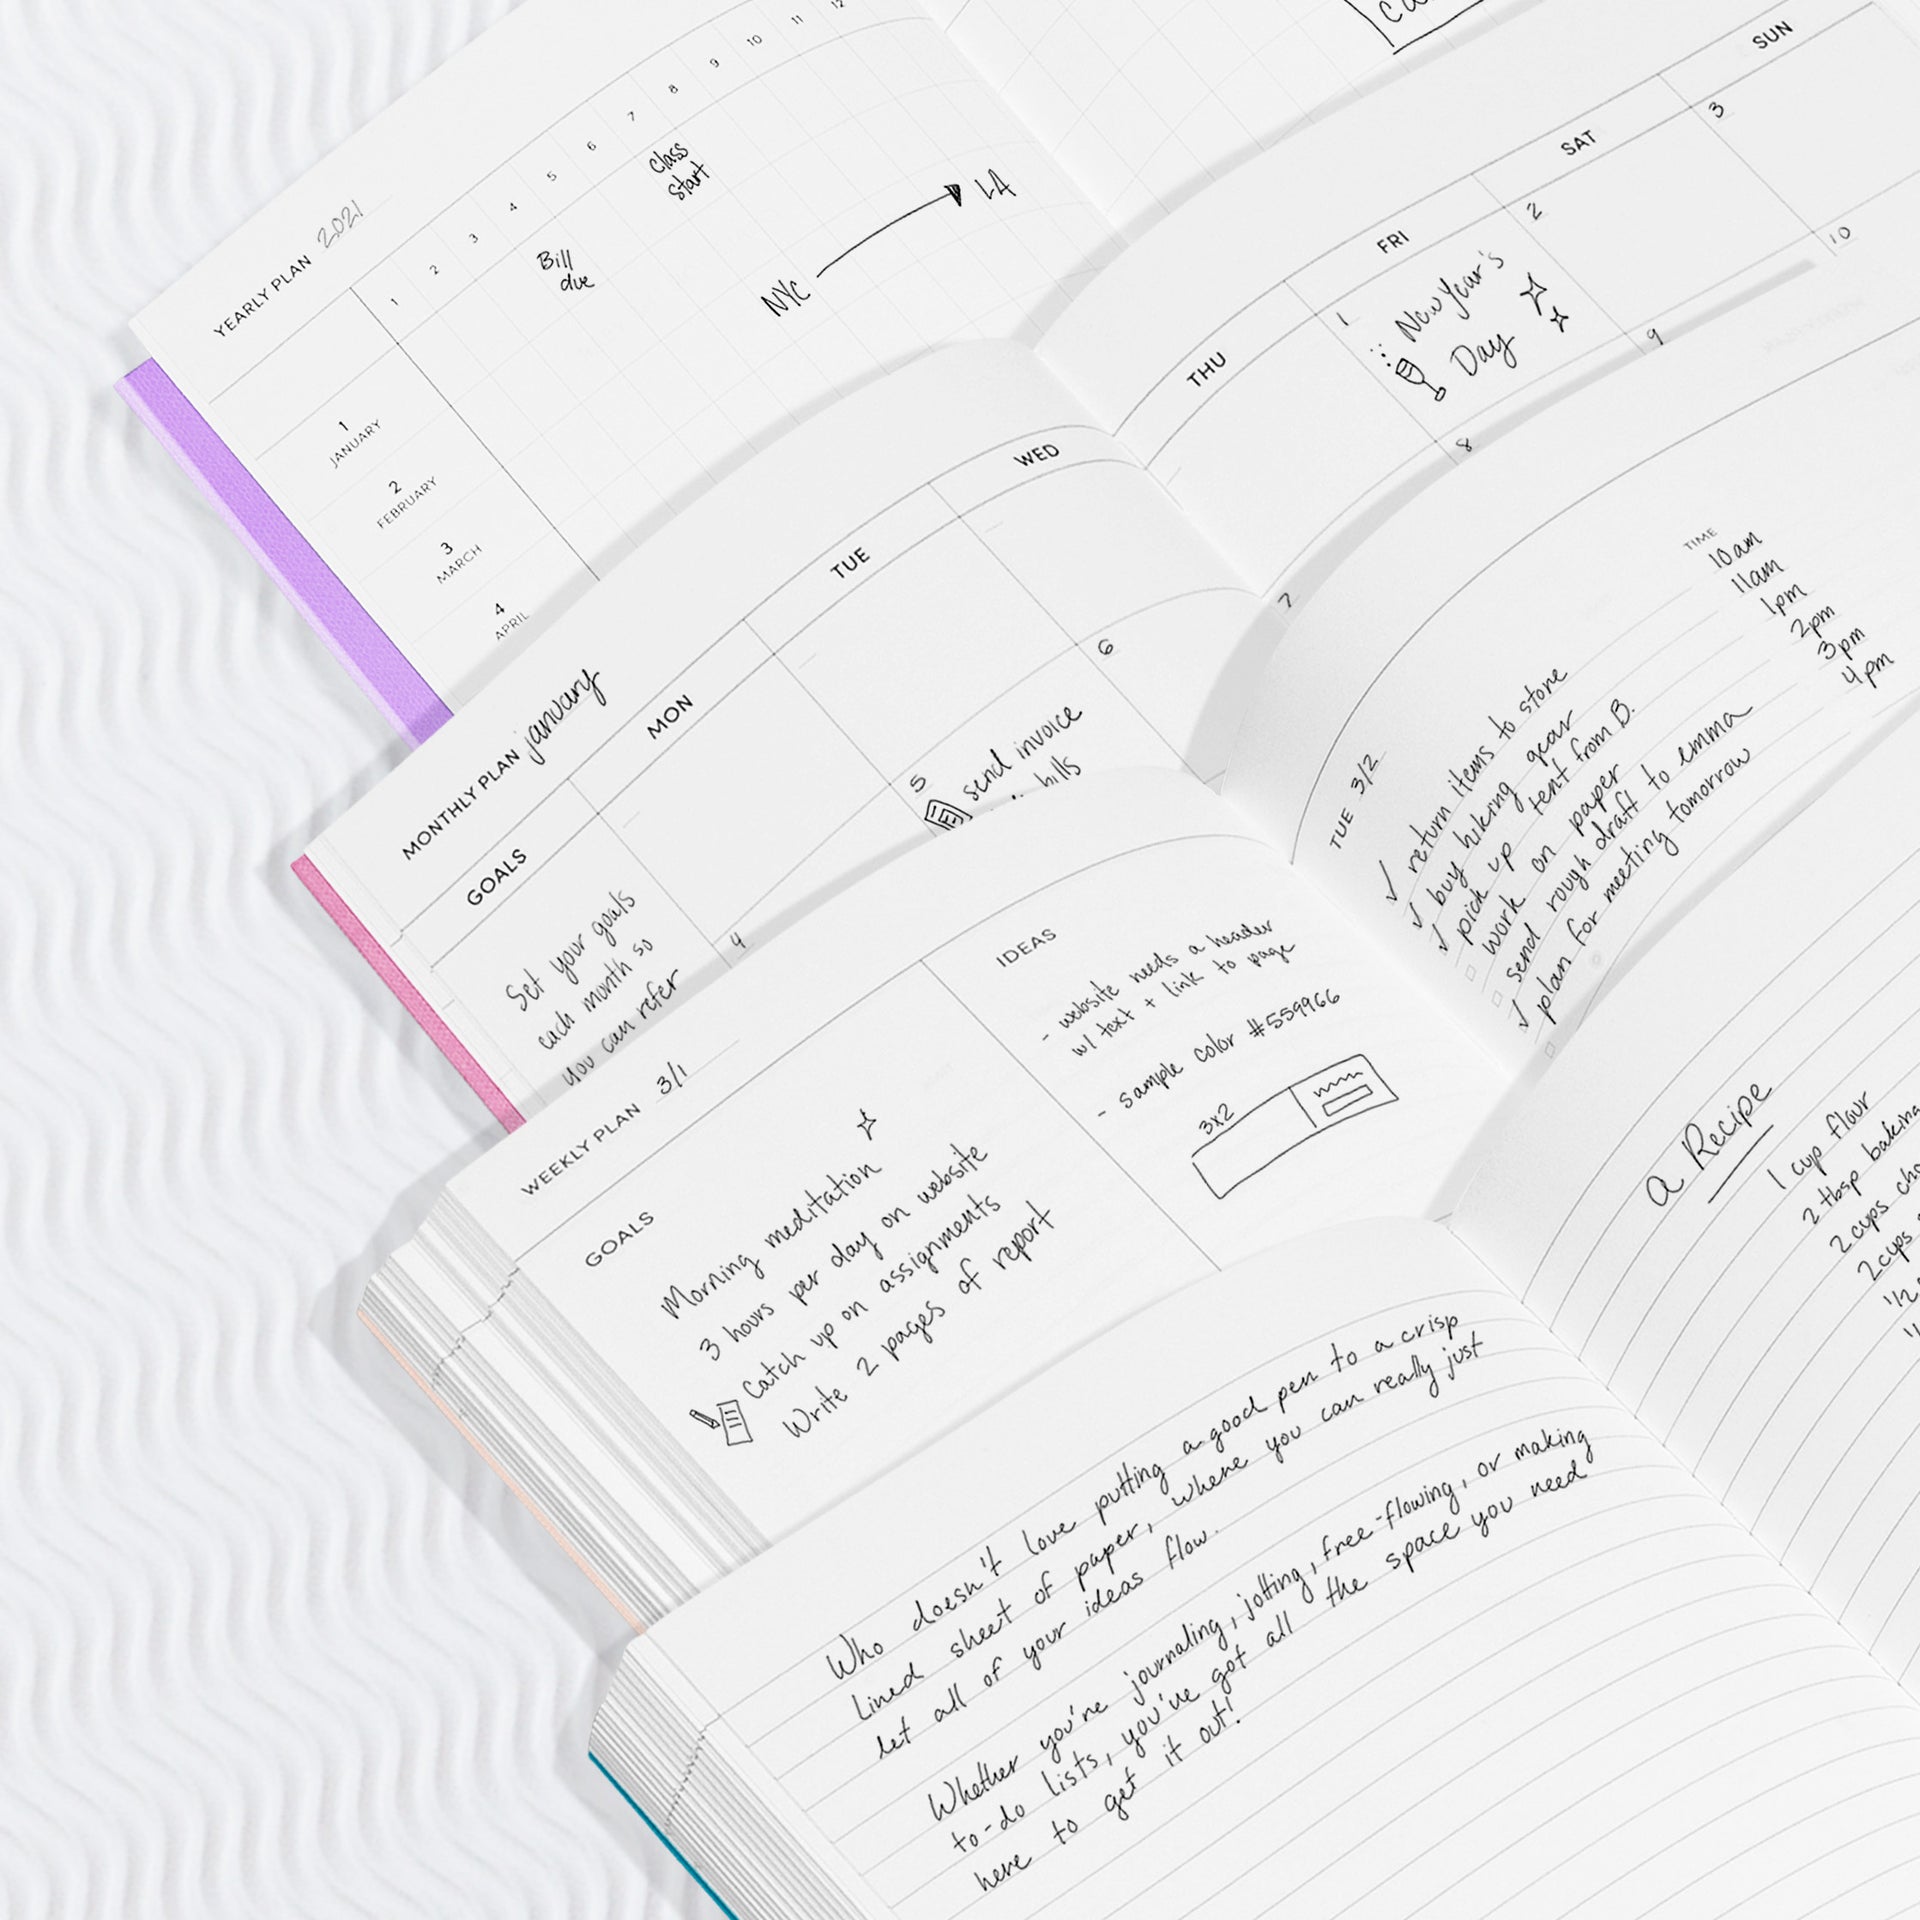 YEARLY PLAN 2021
1 2 3 4 5 6 7 8 9 10 11 12
Class
start
Bill
due
NYC
LA
1
JANUARY
2
FEBRUARY
3
MARCH
4
APRIL
MONTHLY PLAN january
GOALS
MON
TUE
WED
THU
FRI
SAT
SUN
1
2
3
New Year's
Day
4
5
6
7
8
9
10
send invoice
bills
Set your goals
each month so
you can refer
WEEKLY PLAN 3/1
GOALS
Morning meditation
3 hours per day on website
Catch up on assignments
Write 2 pages of report
IDEAS
- website needs a header
w/ text + link to page
- sample color #559966
3x2
TUE 3/2
TIME
✓ return items to store
10am
✓ buy hiking gear
11am
✓ pick up tent from B.
1pm
work on paper
2pm
send rough draft to emma
3pm
✓ plan for meeting tomorrow
4pm
Who doesn't love putting a good pen to a crisp
lined sheet of paper, where you can really just
let all of your ideas flow.
Whether you're journaling, jotting, free-flowing, or making
to-do lists, you've got all the space you need
here to get it out!
a Recipe
1 cup flour
2 tbsp baking
2 cups
2 cups
1/2